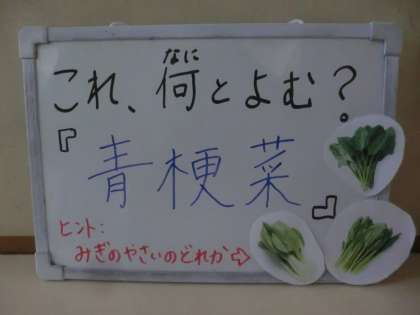 なに
これ、何とよむ?
『青梗菜』
ヒント:
みぎのやさいのどれか⇨